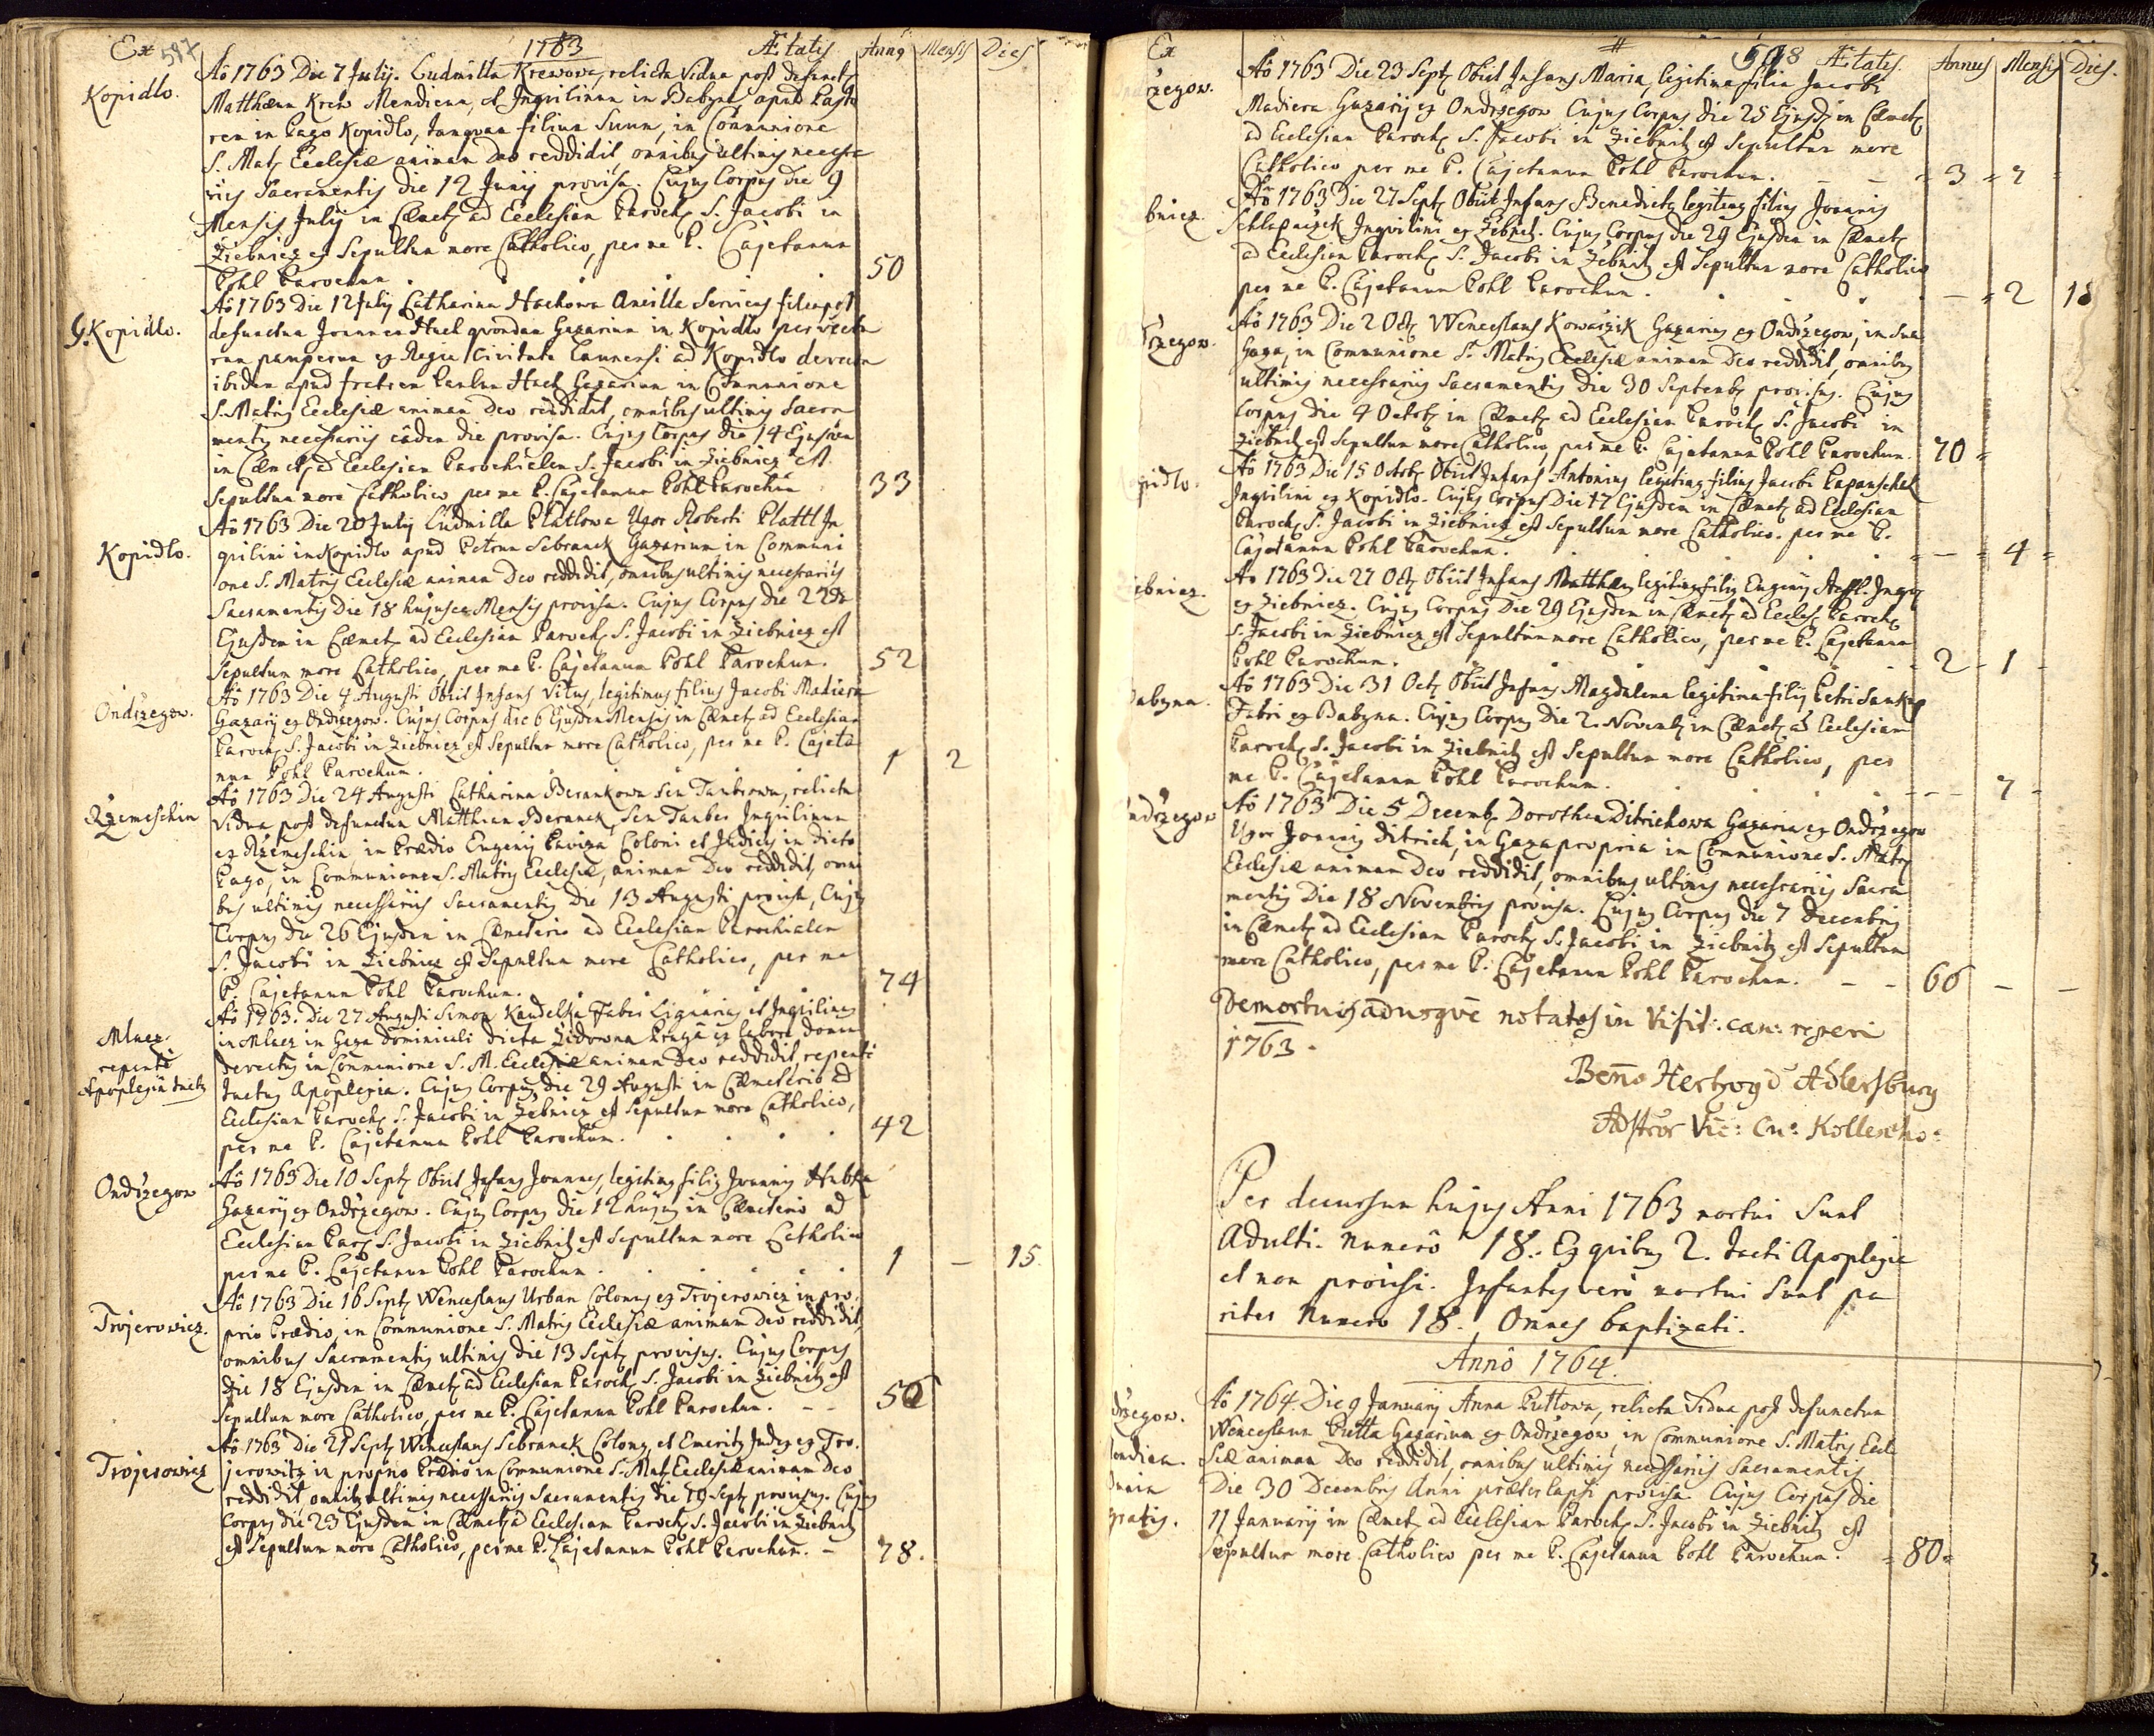 Ex 597 1763 Ætatis Anny Mensis Dies
Kopidlo.
Aõ 1763 Die 7 Julij. Ludmilla Krewove, relicta Vidua post defunctu
Matthæum Krew Mendicum, et Inquilinum in Babyna, apud Pasto
rem in Pago Kopidlo, tanquam filium suum, in Communione
S. Mat. Ecclesiæ animam Deo reddidit, omnibus ultimis necessa
rijs Sacramentis die 12 Junij provisa. Cujus Corpus die 9
Mensis Julij in Cæmet ad Ecclesiam Paroch S. Jacobi in
Ziebnicz est Sepultum more Catholico, per me P. Cajetanum
Pohl Parochum. 50
G. Kopidlo.
Aõ 1763 Die 12 July Catharina Hackowa Ancilla Serviens filia post
defunctum Joannem Huck quondam Gazarium in Kopidlo per vectu
ram pauperum ex Regia Civitate Launensi ad Kopidlo devecta
ibidem apud fratrem Paulum Huck Gazarium in Communione
S. Matris Ecclesiæ animam Deo reddidit, omnibus ultimis Sacra
mentis necessarijs eâdem die provisa. Cujus Corpus die 14 Ejusdem
in Cæmet ad Ecclesiam Parochialem S. Jacobi in Ziebnicz est
Sepultum more Catholico per me P. Cajetanum Pohl Parochum 33
Kopidlo.
Aõ 1763 Die 20 July Ludmilla Plattlowa Uxor Roberti Plattl In
quilini in Kopidlo apud Petrum Sebranek Gazarium in Communi
one S. Matris Ecclesiæ animam Deo reddidit, omnibus ultimis necessariis
Sacramentis Die 18 hujusce Mensis provisa. Cujus Corpus die 22da
Ejusdem in Cæmet ad Ecclesiam Paroch S. Jacobi in Ziebnicz est
Sepultum more Catholico, per me P. Cajetanum Pohl Parochum. 52
Ondrzegow.
Aõ 1763 Die 4 Augusti Obiit Infans Vitus, legitimus filius Jacobi Madiera
Gazarij ex Ondrzegow. Cujus Corpus die 6 Ejusdem Mensis in Cæmet ad Ecclesiam
Paroch S. Jacobi in Ziebnicz est Sepultum more Catholico, per me P. Cajeta
num Pohl Parochum. 1 2
Rzemeschin
Aõ 1763 Die 24 Augusti Catharina Berankowa seu Taubrowa, relicta
Vidua post defunctum Matthiam Beranek, seu Tauber Inquilinum
ex Rzemeschin, in Prædio Eugenij Coloni et Judicis in dicto
Pago, in Communione S. Matris Ecclesiæ, animam Deo reddidit, omni
bus ultimis necessarijs Sacramentis die 13 Augusti provisa, Cujus
Corpus die 26 Ejusdem in Cæmeterio ad Ecclesiam Parochialem
S. Jacobi in Ziebnicz est Sepultum more Catholico, per me
P. Cajetanum Pohl Parochum. 74
Mlucz.
repente
Apoplexia tacty
Aõ 1763. Die 27 Augusti Simon Kaudelka Faber Lignarius et Inquilinus
in Mlucz in Gaza Dominicali dicta Zidowna ex labore domum
devectus in Communione S. M. Ecclesiæ animam Deo reddidit, repenti
tactus Apoplexia. Cujus Corpus die 29 Augusti in Cæmeterio ad
Ecclesiam Paroch S. Jacobi in Zebnicz est Sepultum more Catholico,
per me P. Cajetanum Pohl Parochum. 42
Ondrzegow
Aõ 1763 Die 10 Sept Obiit Infans Joannes, legitimus filius Joannis Hubka
Gazarij ex Ondrzegow. Cujus Corpus die 12 hujus in Cæmeterio ad
Ecclesiam Par S. Jacobi in Ziebnitz est Sepultum more Catholico
per me P. Cajetanum Pohl Parochum. 1 – 15.
Trojerowicz.
Aõ 1763 Die 16 Sept Wenceslaus Urban Colonus ex Trojerowicz in pro
prio Prædio, in Communione S. Matris Ecclesiæ animam Deo reddidit,
omnibus Sacramentis ultimis die 13 Sept provisus. Cujus Corpus
Die 18 Ejusdem in Cæmet ad Ecclesiam Paroch S. Jacobi in Ziebnitz est
Sepultum more Catholico, per me P. Cajetanum Pohl Parochum. – – 50
Trojerowicz
Aõ 1763 Die 21 Sept Wenceslaus Sebranek Colonus, et Emeritus Judex ex Tro
jerowitz in proprio Prædio in Communione S. Mat Ecclesiæ animam Deo
reddidit, omnibus ultimis necessarijs Sacramentis die 19 Sept provisus. Cujus
Corpus die 23 Ejusdem in Cæmet ad Ecclesiam Paroch S. Jacobi in Ziebnitz
est Sepultum more Catholico, per me P. Cajetanum Pohl Parochum. – 78.
Ex 598 Ætatis. Annus Mensis Dies.
rzegow.
Aõ 1763 Die 23 Sept Obiit Infans Maria, legitima filia Jacobi
Madiera Gazarij ex Ondrzegow Cujus Corpus die 25 Ejusd in Cæmet
ad Ecclesiam Paroch S. Jacobi in Ziebnitz est Sepultum more
Catholico per me P. Cajetanum Pohl Parochum. – – 3 – 7
bnicz
Aõ 1763 Die 27 Sept Obiit Infans Benedictus legitimus filius Joannis
Inquilini ex Zebnitz. Cujus Corpus die 29 Ejusdem in Cæmet
ad Ecclesiam Paroch S. Jacobi in Zebnitz est Sepultum more Catholico
per me P. Cajetanum Pohl Parochum. – 2 18
rzegow.
Aõ 1763 Die 2 Oct Wenceslaus Kowarzik Gazarius ex Ondrzegow, in sua
Gaza, in Communione S. Matris Ecclesiæ animam Deo reddidit, omnibus
ultimis necessarijs Sacramentis die 30 Septemb provisus. Cujus
Corpus die 4 Octob in Cæmet ad Ecclesiam Paroch S. Jacobi in
Ziebnitz est Sepultum more Catholico, per me P. Cajetanum Pohl Parochum. 70
opidlo.
Aõ 1763 Die 15 Octob Obiit Infans Antonius legitimus filius Jacobi Papauschek
Inquilini ex Kopidlo. Cujus Corpus Die 17 Ejusdem in Cæmet ad Ecclesiam
Paroch S. Jacobi in Ziebnicz est Sepultum more Catholico. per me P.
Cajetanum Pohl Parochum. – 4
iebnicz.
Aõ 1763 Die 27 Oct Obiit Infans Matthæus legitimus filius Eugenij Inqui
ex Ziebnicz. Cujus Corpus Die 29 Ejusdem in Cæmet ad Eccles Paroch
S. Jacobi in Ziebnicz est Sepultum more Catholico, per me P. Cajetanum
Pohl Parochum. 2 – 1 –
Babyna.
Aõ 1763 Die 31 Oct Obiit Infans Magdalena legitima filia Petri
Fabri ex Babyna. Cujus Corpus Die 2. Novemb in Cæmet ad Ecclesiam
Paroch S. Jacobi in Ziebnitz est Sepultum more Catholico, per
me P. Cajetanum Pohl Parochum. – – 7 –
ndrzegow
Aõ 1763 Die 5 Decemb Dorothea Ditrichowa Gazaria ex Ondrzegow
Uxor Joannis Ditrich, in Gaza propria in Communione S. Matris
Ecclesiæ animam Deo reddidit, omnibus ultimis necessarijs Sacra
mentis Die 18 Novembris provisa. Cujus Corpus die 7 Decembris
in Cæmet ad Ecclesiam Paroch S. Jacobi in Ziebnitz est Sepultum
more Catholico, per me P. Cajetanum Pohl Parochum. – – 66 – –
Demortuos adusque notatos in Visit: can: reperi
1763.
Benno Hertzog d'Adlersburg
Adstror Vic: Cu: Kollescho:
Per decursum hujus Anni 1763 mortui Sunt
Adulti. Numerô 18. Ex quibus 2. tacti Apoplexie
et non provisi. Infantes verò mortui Sunt pa
riter Numero 18. Omnes baptizati.
Annô 1764.
drzegow.
Aõ 1764 Die 9 January Anna Puttowa, relicta Vidua post defunctum
Wenceslaum Putta Gazarium ex Ondrzegow, in Communione S. Matris Eccle
siæ animam Deo reddidit, omnibus ultimis necessariis Sacramentis
Die 30 Decembris Anni præterlapsi provisa. Cujus Corpus die
gratis.
11 Januarij in Cæmet ad Ecclesiam Paroch S. Jacobi in Ziebnitz est
Sepultum more Catholico per me P. Cajetanum Pohl Parochum. 80